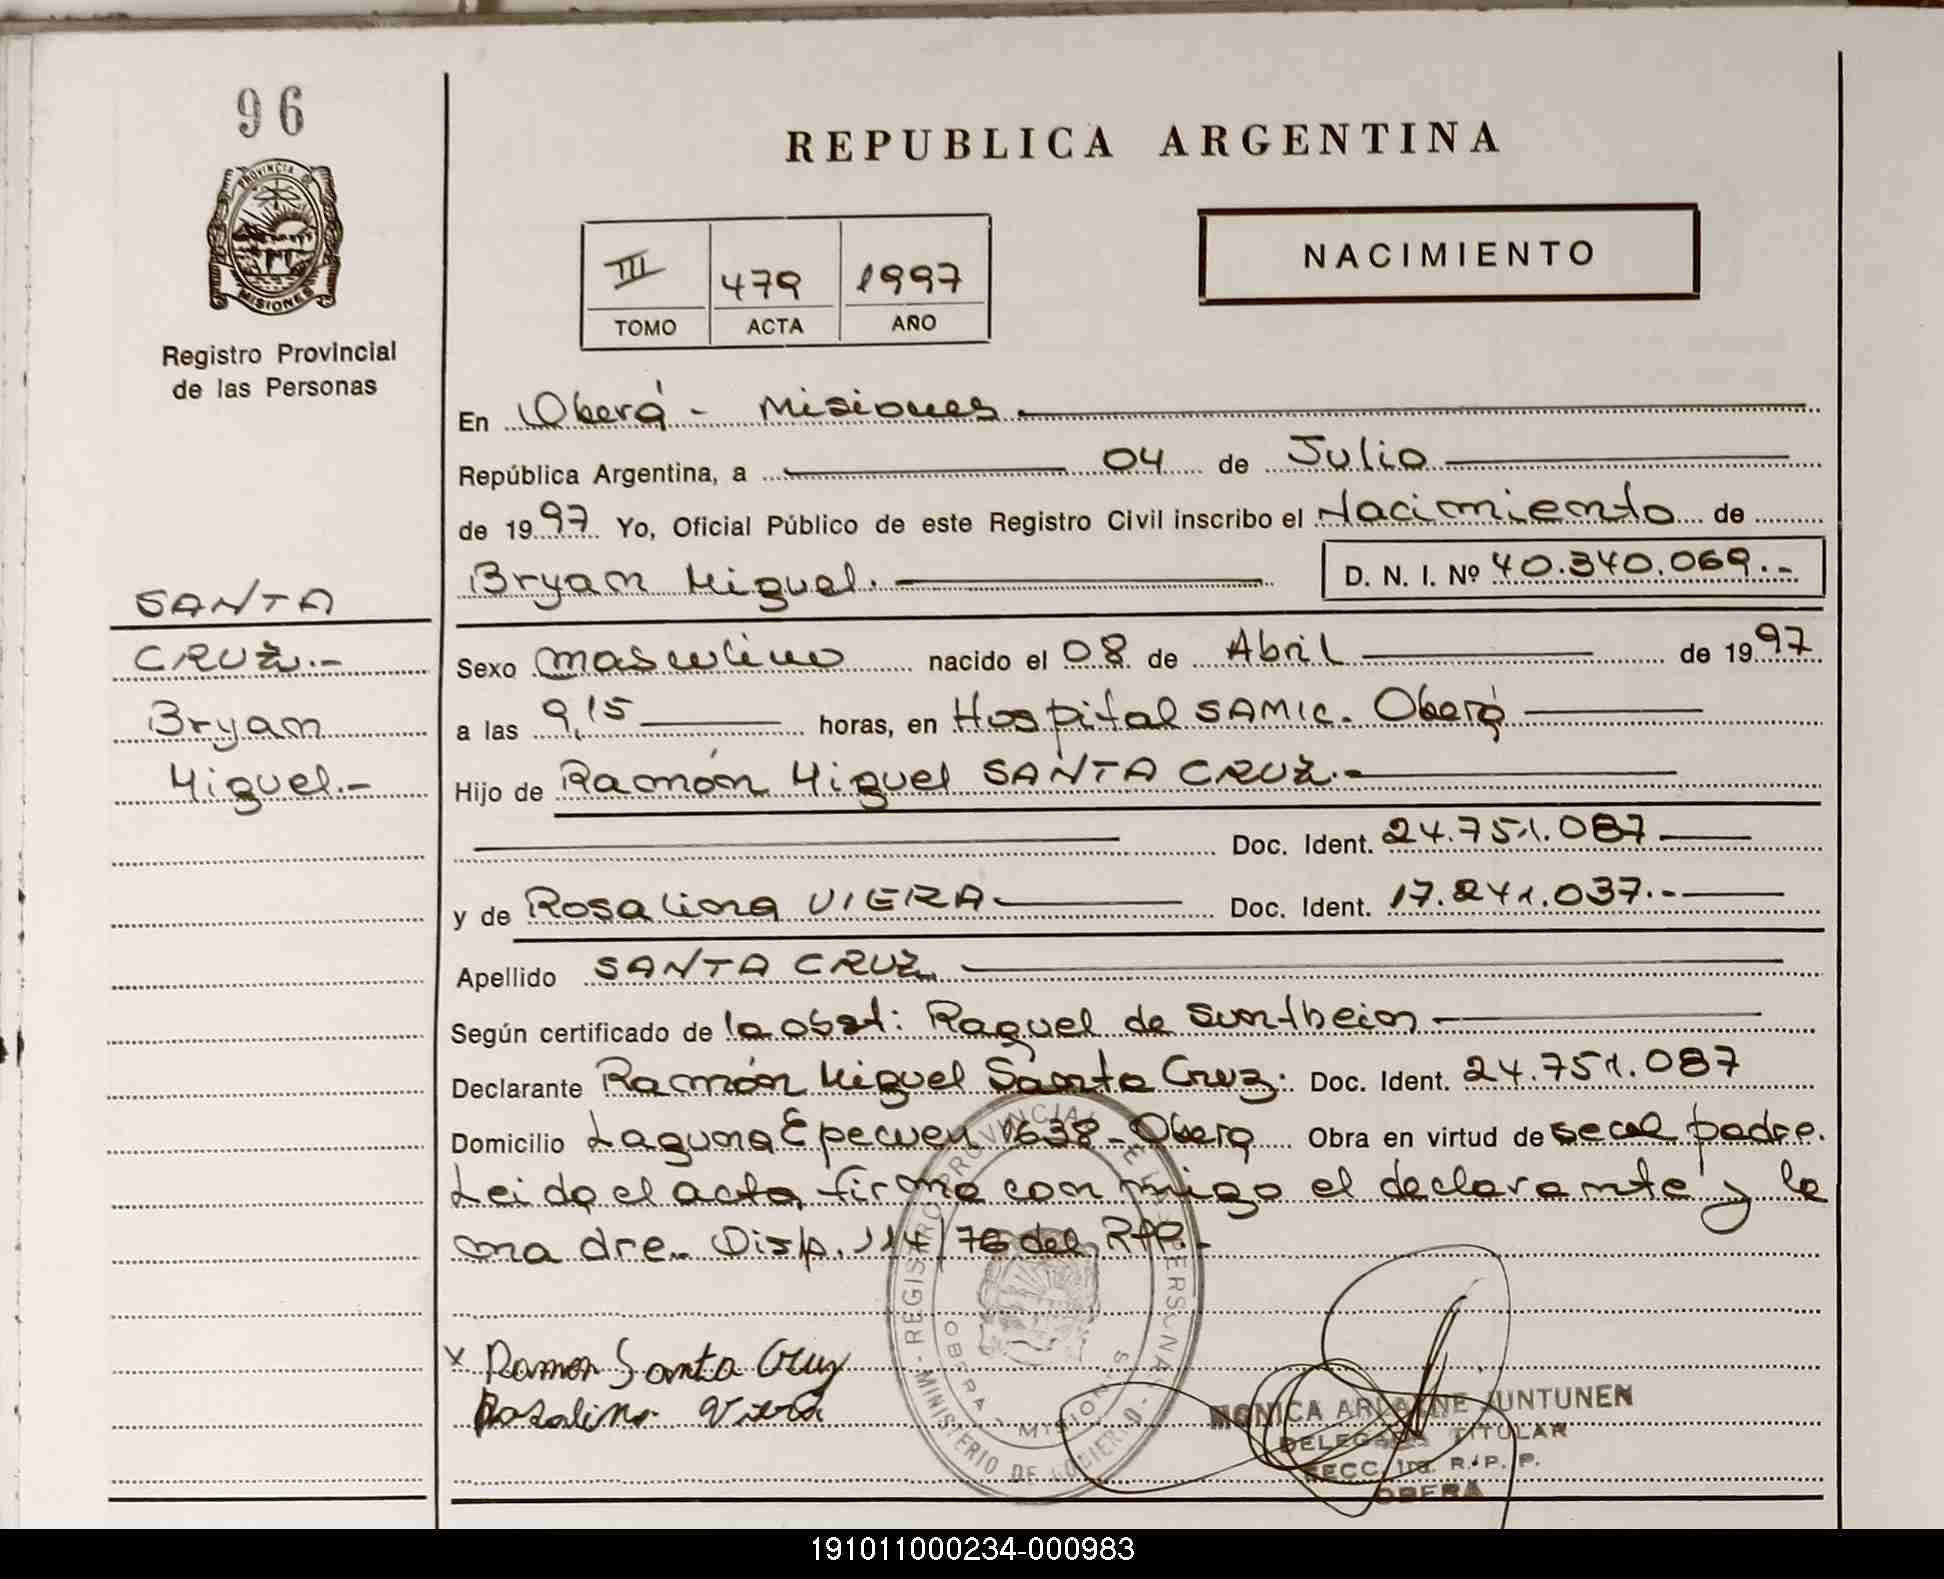 96
PROVINCIA DE
MISIONES
Registro Provincial
de las Personas
REPUBLICA ARGENTINA
NACIMIENTO
III 479 1997
TOMO ACTA AÑO
En Oberá - Misiones
República Argentina, a 04 de Julio
de 1997 Yo, Oficial Público de este Registro Civil inscribo el Nacimiento de
Bryan Miguel. D. N. I. Nº 40.340.069.-
SANTA
CRUZ.-
Bryan
Miguel.-
Sexo masculino nacido el 08 de Abril de 1997
a las 9,15 horas, en Hospital SAMIC. Oberá
Hijo de Ramón Miguel SANTA CRUZ.-
Doc. Ident. 24.751.087
y de Rosalina VIERA Doc. Ident. 17.241.037.-
Apellido SANTA CRUZ
Según certificado de la obst: Raquel de
Declarante Ramón Miguel Santa Cruz. Doc. Ident. 24.751.087
Domicilio Laguna Epecuen 1638-Oberá Obra en virtud de padre.
Leida el acta, firma con migo el declarante y la
madre. Disp. 114/76 del RPP.-
x Ramon Santa Cruz
Rosalina Viera
REGISTRO PROVINCIAL DE LAS PERSONAS
MINISTERIO DE GOBIERNO
OBERA MISIONES
MONICA ARIADNE JUNTUNEN
DELEGADA TITULAR
SECC. 1ra. R. P. P.
OBERA
191011000234-000983